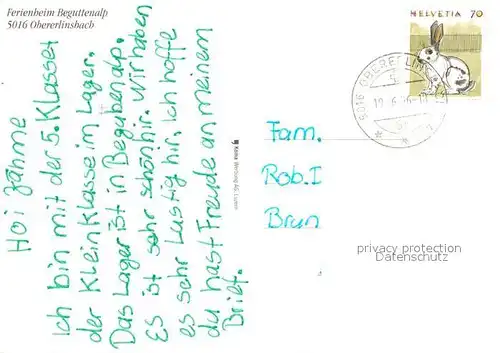 Ferienheim Beguttenalp
5016 Obererlinsbach
HELVETIA 70
5016 OBERERLINSBACH
Hoi Jahme
Ich bin mit der 5. Klasse
der Kleinklasse im Lager.
Das Lager ist in Begubenalp.
Es ist sehr schön hir. Wir haben
es sehr Lustig hir. Ich hoffe
du hast Freude an meinem
Brief.
Fam.
Rob. I
Brun
privacy protection
Datenschutz